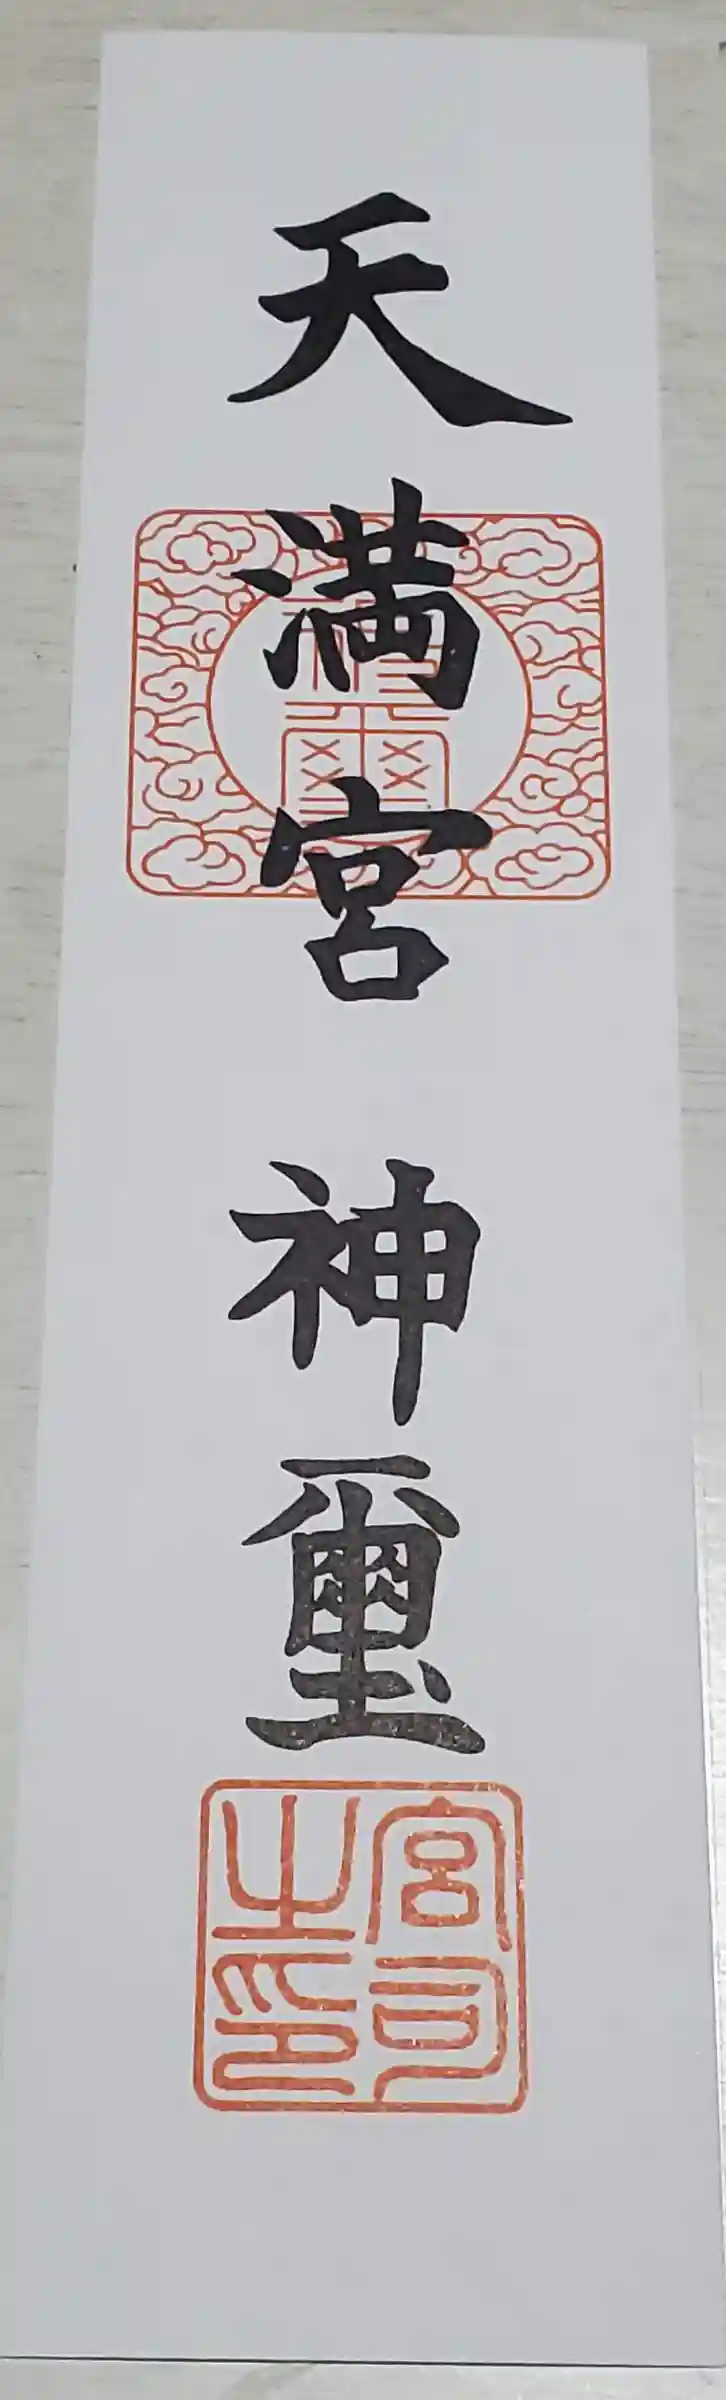 天満宮 神璽
宮司之印